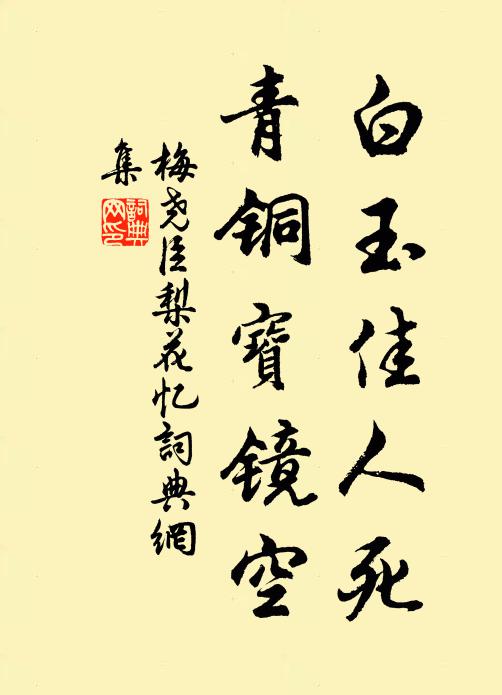 白玉佳人死
青铜寶镜空
梅尧臣梨花忆詞典網
集
詞典
网印